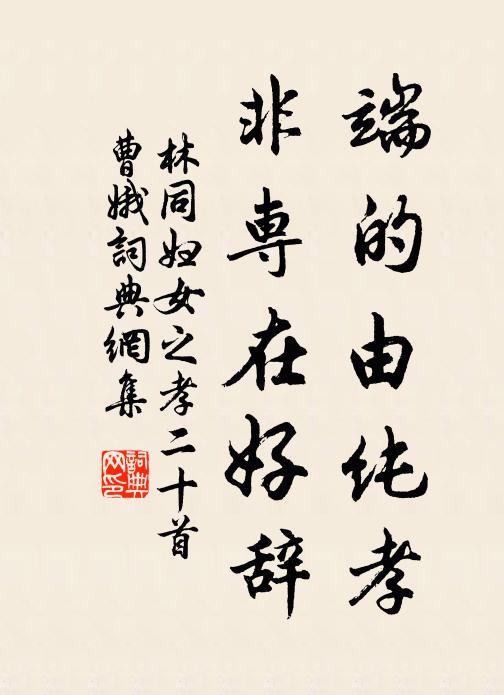 端的由纯孝
非専在好辞
林同妇女之孝二十首
曹娥詞典網集
詞典网印